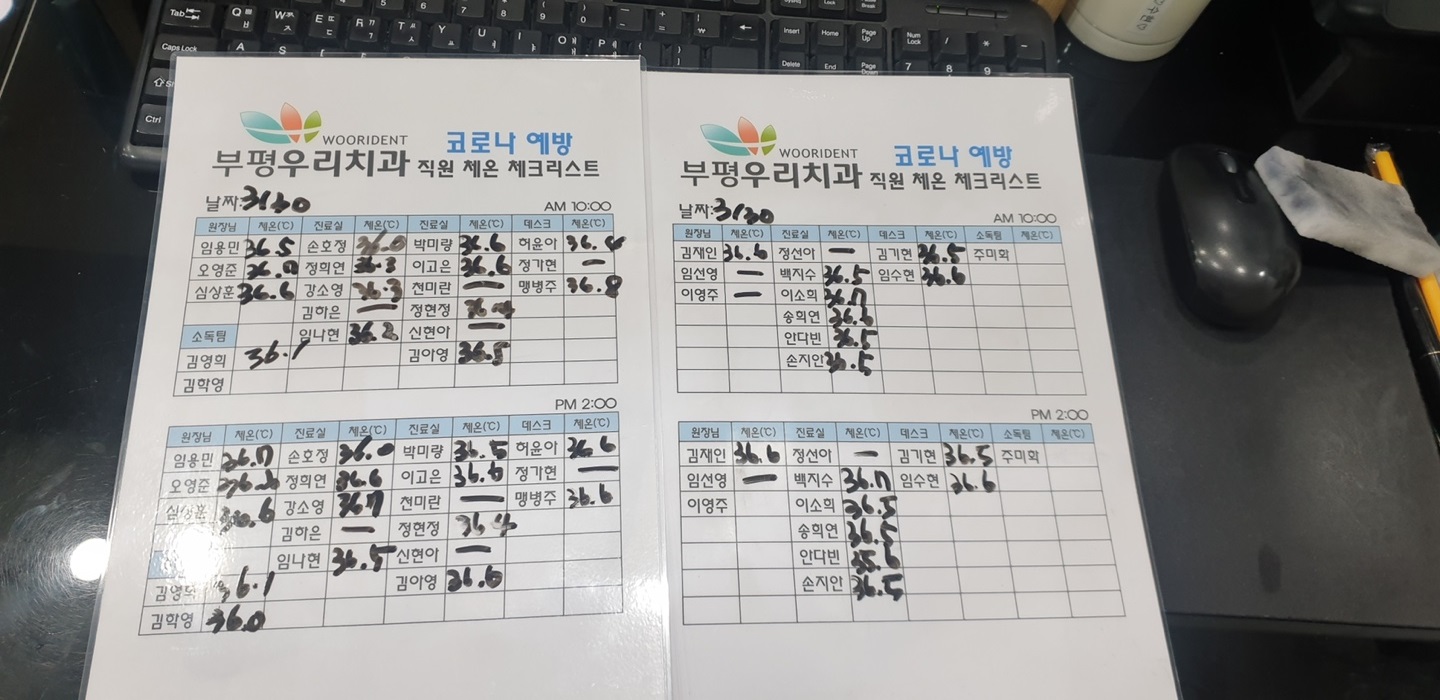 WOORIDENT
부평우리치과 코로나 예방 직원 체온 체크리스트
날짜: 3/30 AM 10:00
원장님 체온(℃) 진료실 체온(℃) 진료실 체온(℃) 데스크 체온(℃)
임용민 36.5 손호정 36.0 박미량 36.6 허윤아
오영준 정희연 36.3 이고은 36.6 정가현 —
심상훈 36.6 강소영 36.3 천미란 — 맹병주 36.8
김하은 — 정현정 36.4
소독팀 임나현 36.2 신현아 —
김영희 36.1 김아영 36.5
김학영
PM 2:00
원장님 체온(℃) 진료실 체온(℃) 진료실 체온(℃) 데스크 체온(℃)
임용민 36.7 손호정 36.0 박미량 36.5 허윤아 36.6
오영준 정희연 36.6 이고은 36.6 정가현 —
심상훈 36.6 강소영 36.7 천미란 — 맹병주 36.6
김하은 — 정현정 36.4
임나현 36.5 신현아 —
36.1 김아영 36.6
김학영 36.0
WOORIDENT
부평우리치과 코로나 예방 직원 체온 체크리스트
날짜: 3/30 AM 10:00
원장님 체온(℃) 진료실 체온(℃) 데스크 체온(℃) 소독팀 체온(℃)
김재인 36.6 정선아 — 김기현 36.5 주미화
임선영 — 백지수 36.5 임수현 36.6
이영주 — 이소희 36.7
송희연
안다빈 36.5
손지안 36.5
PM 2:00
원장님 체온(℃) 진료실 체온(℃) 데스크 체온(℃) 소독팀 체온(℃)
김재인 36.6 정선아 — 김기현 36.5 주미화
임선영 — 백지수 36.7 임수현 36.6
이영주 이소희 36.5
송희연 36.5
안다빈
손지안 36.5